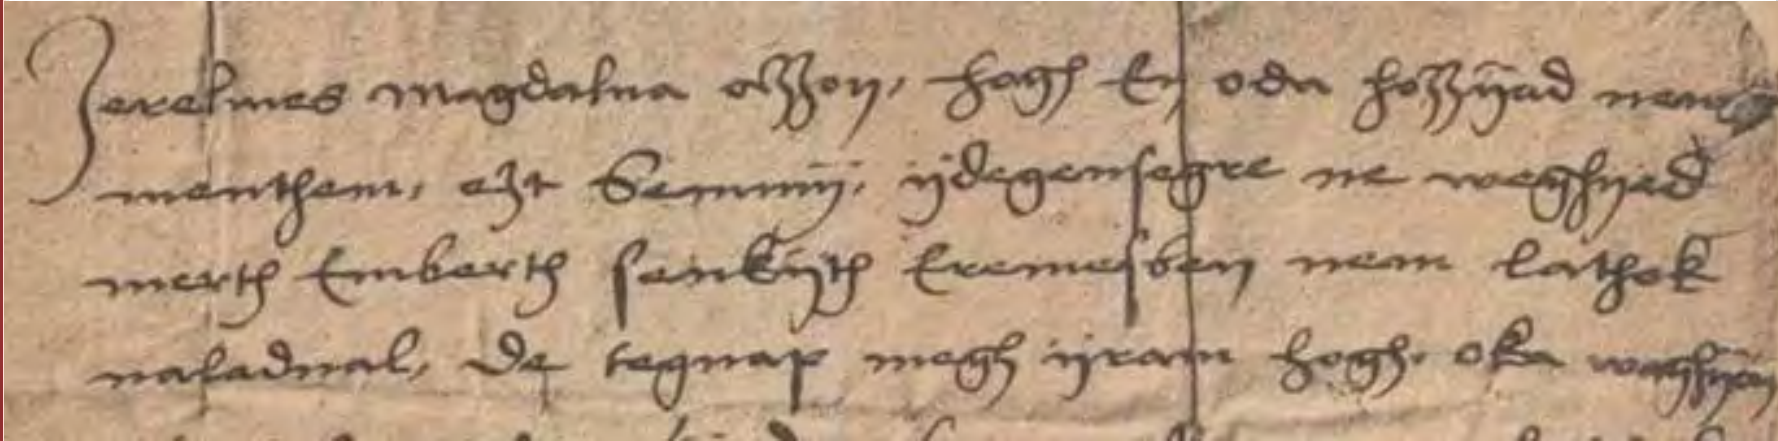 Zerelmes magdalna azzon, hogh En oda hozzyad nem
menthem, ezt Semmy, ydegensegre ne weghyed
merth Emberth senkyth Eremesben nem lathok
naladnal, de tegnap megh yram hogh oka waghyon